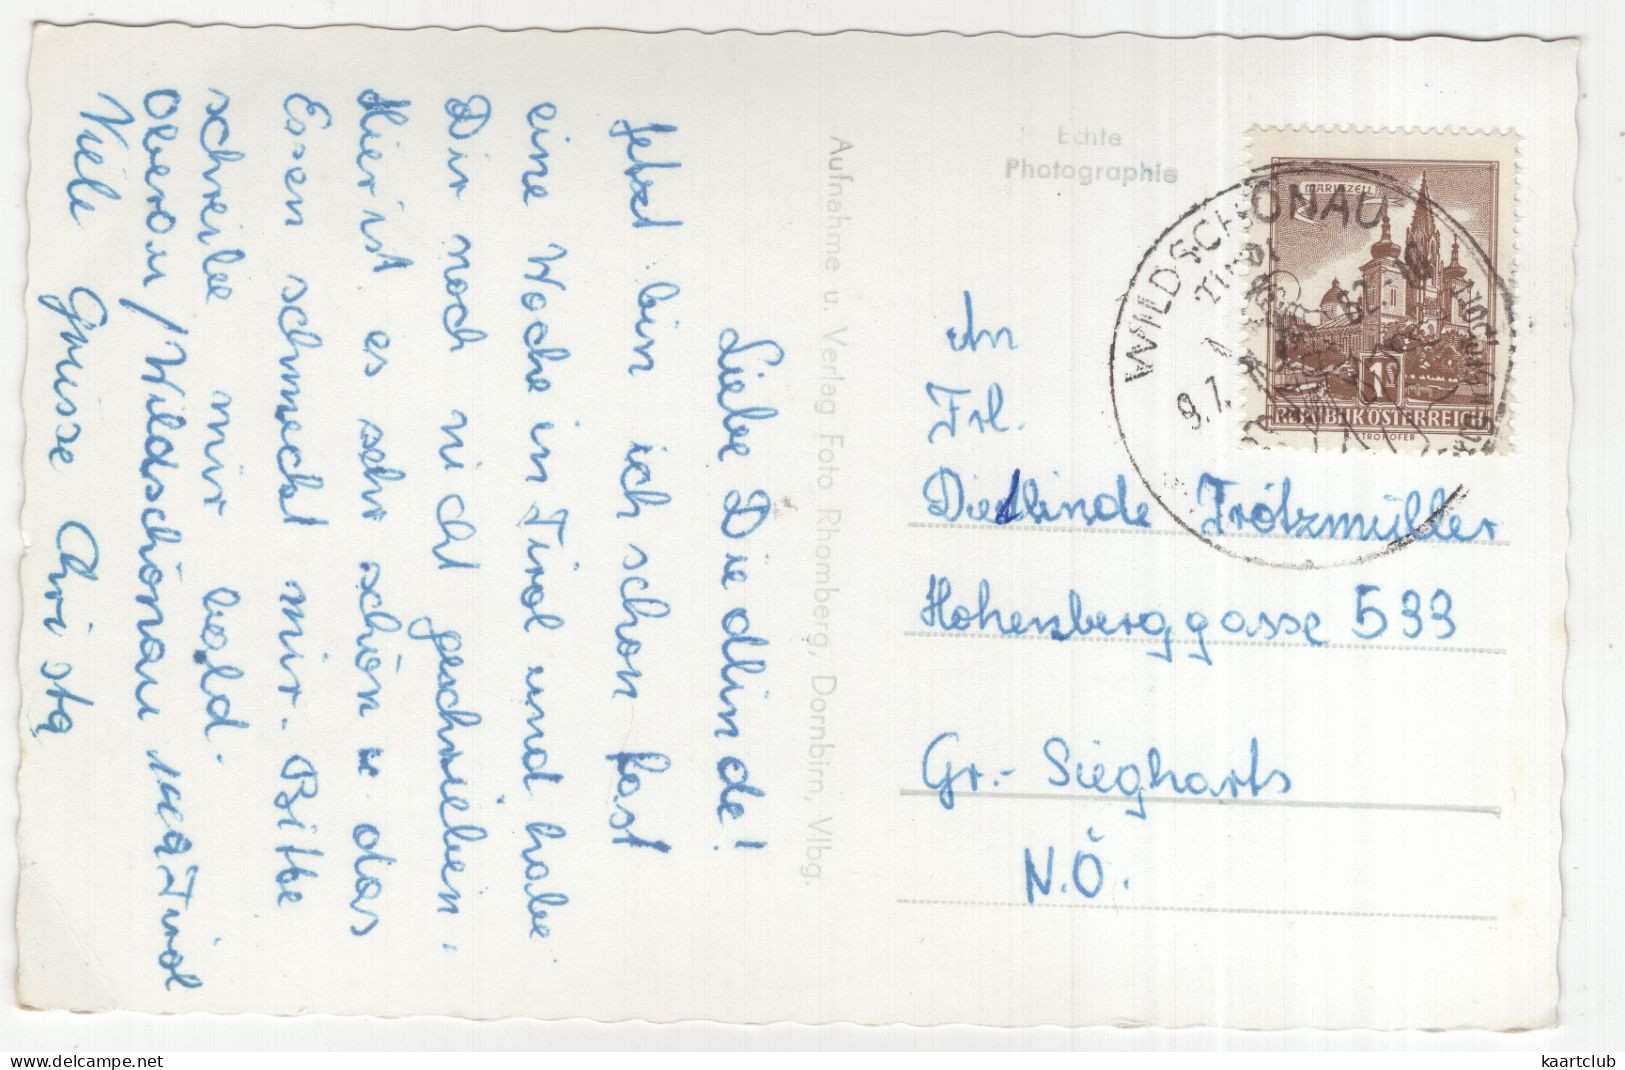 Liebe Diedlinde!
Jetzt bin ich schon fast
eine Woche in Tirol und habe
Dir noch nicht geschrieben.
Hier ist es sehr schön u das
Essen schmeckt mir. Bitte
schreibe mir bald.
Oberau/Wildschönau Tirol
Viele Grüsse Christa
Aufnahme u. Verlag Foto Rhomberg, Dornbirn, Vlbg.
Echte
Photographie
MARIAZELL
1 S
REPUBLIK ÖSTERREICH
A. STROHOFER
WILDSCHÖNAU
An
Frl.
Diedlinde Trötzmüller
Hohenberggasse 533
Gr.- Siegharts
N.Ö.
kaartclub
delcampe.net